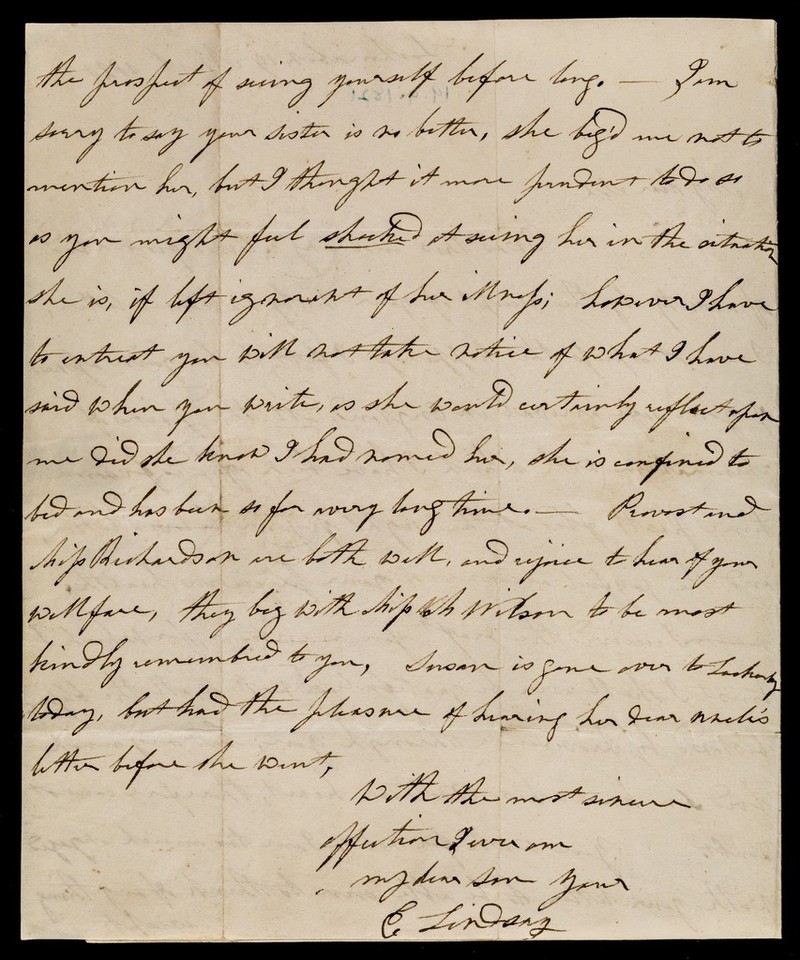 the prospect of seeing yourself before long. — I am
sorry to say your sister is no better, she beg'd me not to
mention her, but I thought it more prudent to do so
as you might feel shocked at seeing her in the situation
she is, if left ignorant of her illness; however I have
to entreat you will not take notice of what I have
said when you write, as she would certainly reflect upon
me did she know I had named her, she is confined to
bed and has been so for a very long time. — Provost and
Miss Richardson are both well, and rejoice to hear of your
wellfare, they beg with Miss Wilson to be most
kindly remembred to you, Susan is gone over to
today, but had the pleasure of hearing her dear uncle's
letter before she went,
With the most sincere
affection I ever am
my dear son your
E Lindsay